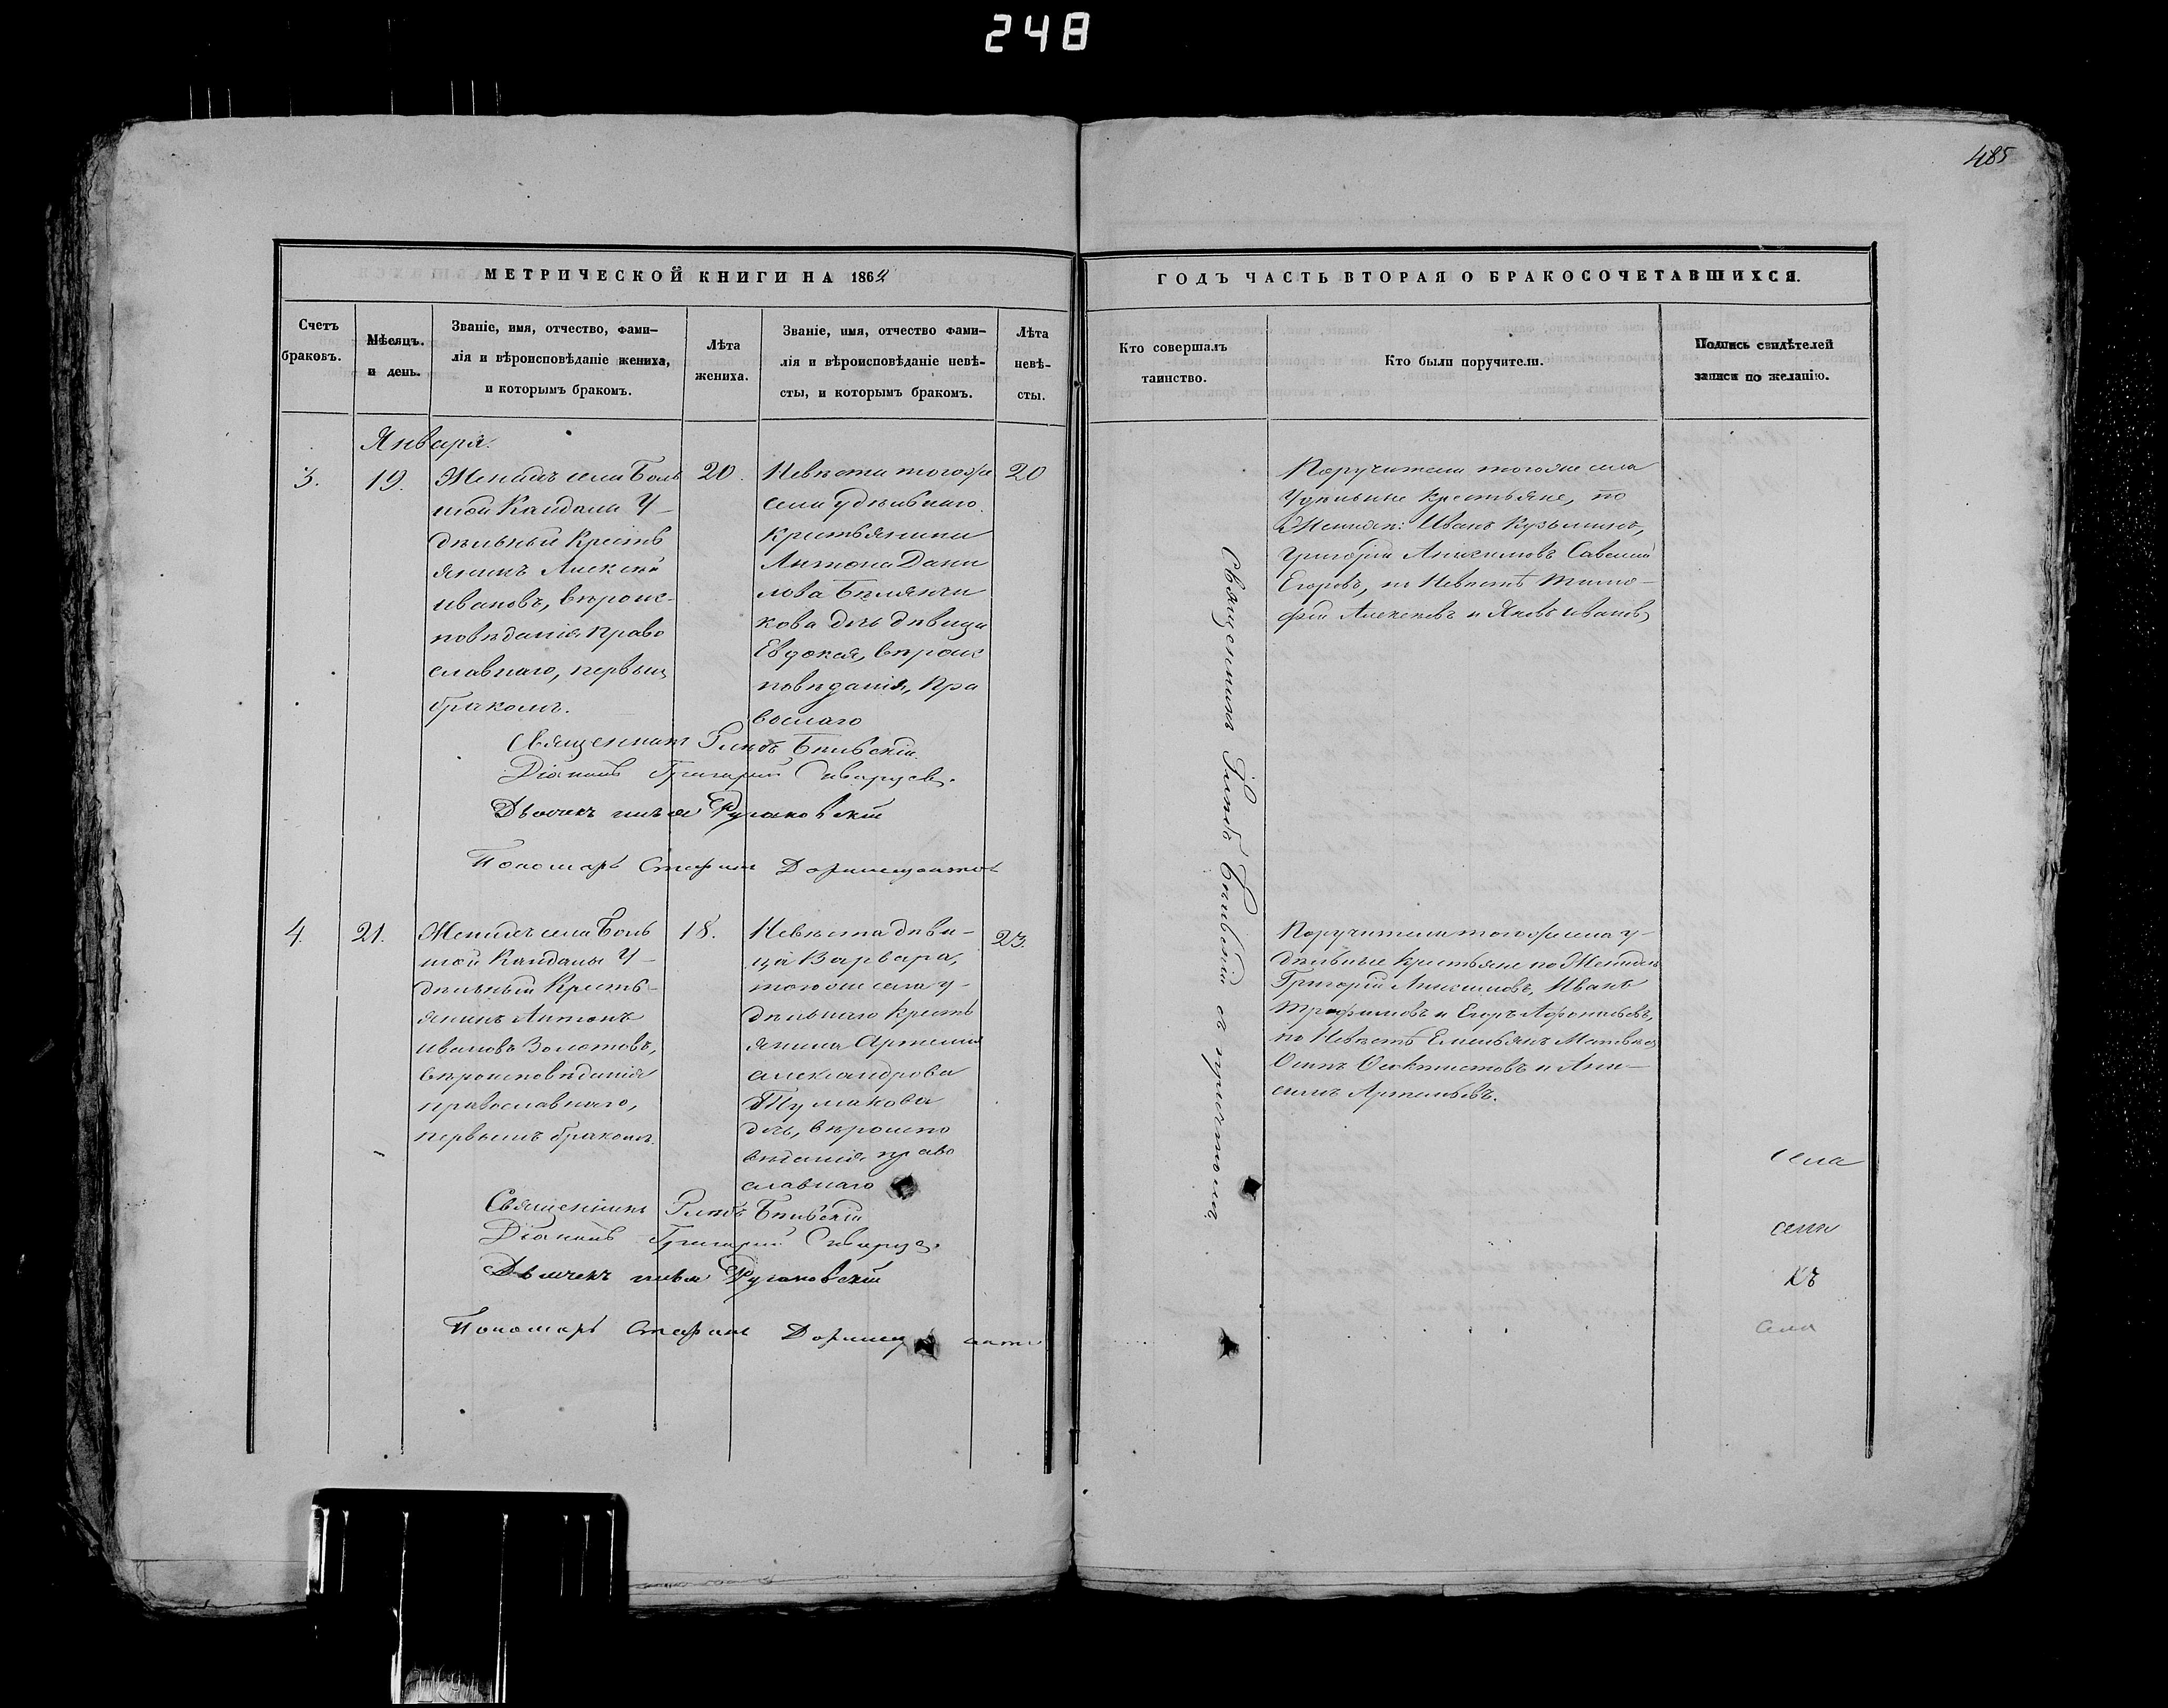 248
485
МЕТРИЧЕСКОЙ КНИГИ НА 1864
ГОДЪ ЧАСТЬ ВТОРАЯ О БРАКОСОЧЕТАВШИХСЯ.
Счетъ
браковъ.
Мѣсяцъ.
и день.
Званіе, имя, отчество, фами-
лія и вѣроисповѣданіе жениха,
и которымъ бракомъ.
Лѣта
жениха.
Званіе, имя, отчество фами-
лія и вѣроисповѣданіе невѣ-
сты, и которымъ бракомъ.
Лѣта
невѣ-
сты.
Кто совершалъ
таинство.
Кто были поручители.
Подпись свидѣтелей
записи по желанію.
Января.
3.
19.
Женихъ села Боль
шой Кандалы У-
дѣльный Кресть
янинъ Алексѣй
Ивановъ, вѣроис-
повѣданія право
славнаго, первымъ
бракомъ.
20.
Невѣста тогоже
села удѣльнаго
крестьянина
Антона Дани
лова Бѣлянчи
кова дчь дѣвица
Евдокія, вѣроис
повѣданія, Пра
вослаго
20
Поручители тогоже села
Удѣльные крестьяне, по
Женихѣ: Иванъ Кузьминъ,
Григорій Анисимовъ Савелій
Егоровъ, по Невѣстѣ Тимо-
фѣй Алексѣевъ и Яковъ Ивановъ
Священникъ Глѣбъ Бѣльскій
Діаконъ Григорій
Дьячекъ Илья
Пономарь Стефанъ Доримедонтовъ
Священникъ Глѣбъ Бѣльскій съ причтомъ
4.
21.
Женихъ села Боль
шой Кандалы У-
дѣльный Кресть-
янинъ Антонъ
Ивановъ Золотовъ,
вѣроисповѣданія
православнаго,
первымъ бракомъ.
18.
Невѣста дѣви-
ца Варвара,
тогоже села у-
дѣльнаго кресть
янина Артемія
Александрова
Тумакова
дчь, вѣроиспо
вѣданія, право
славнаго
23.
Поручители тогоже села у-
дѣльные крестьяне по Женихѣ
Григорій Анисимовъ, Иванъ
Трофимовъ и Егоръ Афонасьевъ,
по Невѣстѣ Емельянъ Матвѣевъ
Осипъ Феоктистовъ и Ани-
симъ Артемьевъ.
Священникъ Глѣбъ Бѣльскій
Діаконъ Григорій
Дьячекъ Илья
Пономарь Стефанъ
села
села
села